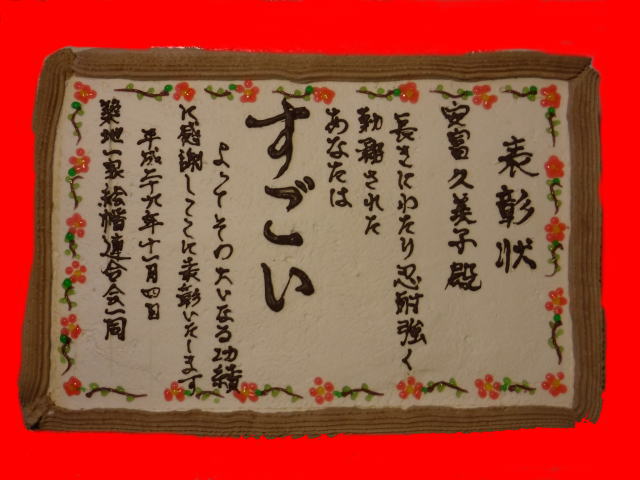 表彰状
安富久美子殿
長きにわたり忍耐強く
勤務された
あなたは
すごい
よってその大いなる功績
に感謝しここに表彰いたします
平成二十九年十一月四日
築地一家絵幡連合会一同